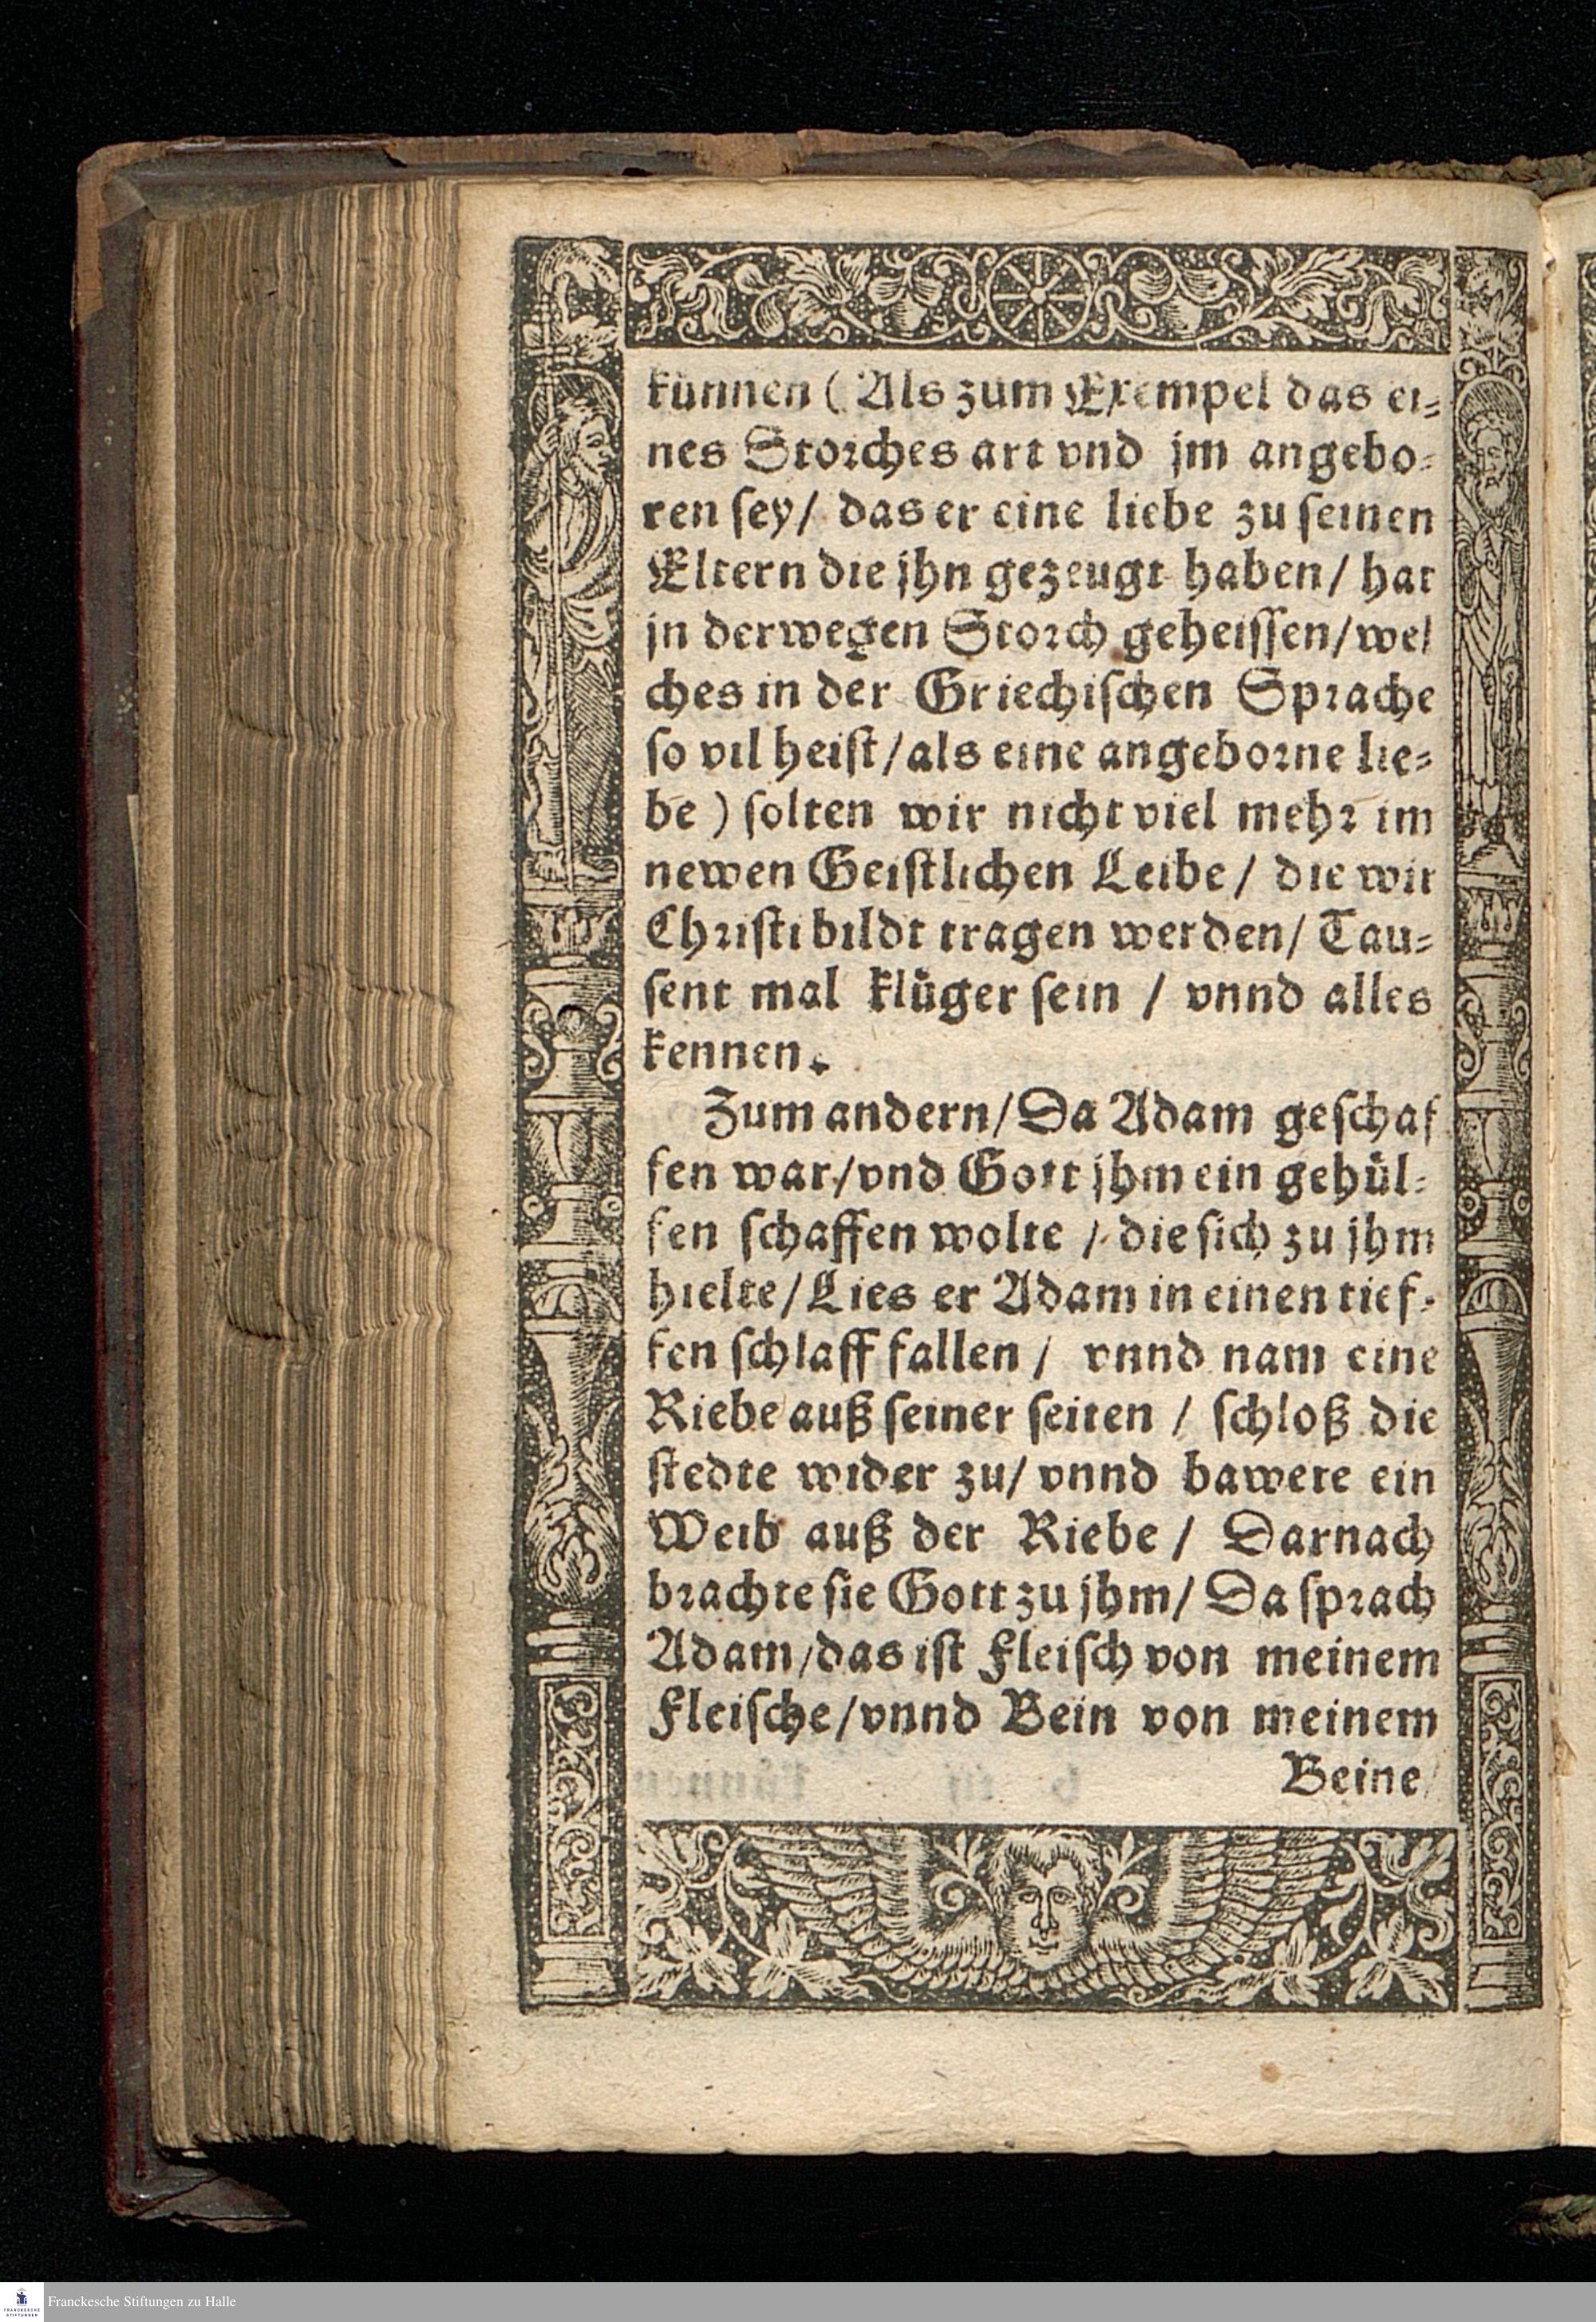 künnen (Als zum Exempel das ei⸗
nes Storches art vnd jm angebo⸗
ren sey/ das er eine liebe zu seinen
Eltern die jhn gezeugt haben/ hat
jn derwegen Storch geheissen/wel
ches in der Griechischen Sprache
so vil heist/als eine angeborne lie⸗
be) solten wir nicht viel mehr im
newen Geistlichen Leibe/ die wir
Christi bildt tragen werden/ Tau⸗
sent mal klüger sein / vnnd alles
kennen.
Zum andern/Da Adam geschaf
fen war/vnd Gott jhm ein gehül⸗
fen schaffen wolte / die sich zu jhm
hielte/Lies er Adam in einen tief⸗
fen schlaff fallen / vnnd nam eine
Riebe auß seiner seiten / schloß die
stedte wider zu/ vnnd bawete ein
Weib auß der Riebe/ Darnach
brachte sie Gott zu jhm/ Da sprach
Adam/das ist Fleisch von meinem
Fleische/vnnd Bein von meinem
Beine/
Franckesche Stiftungen zu Halle